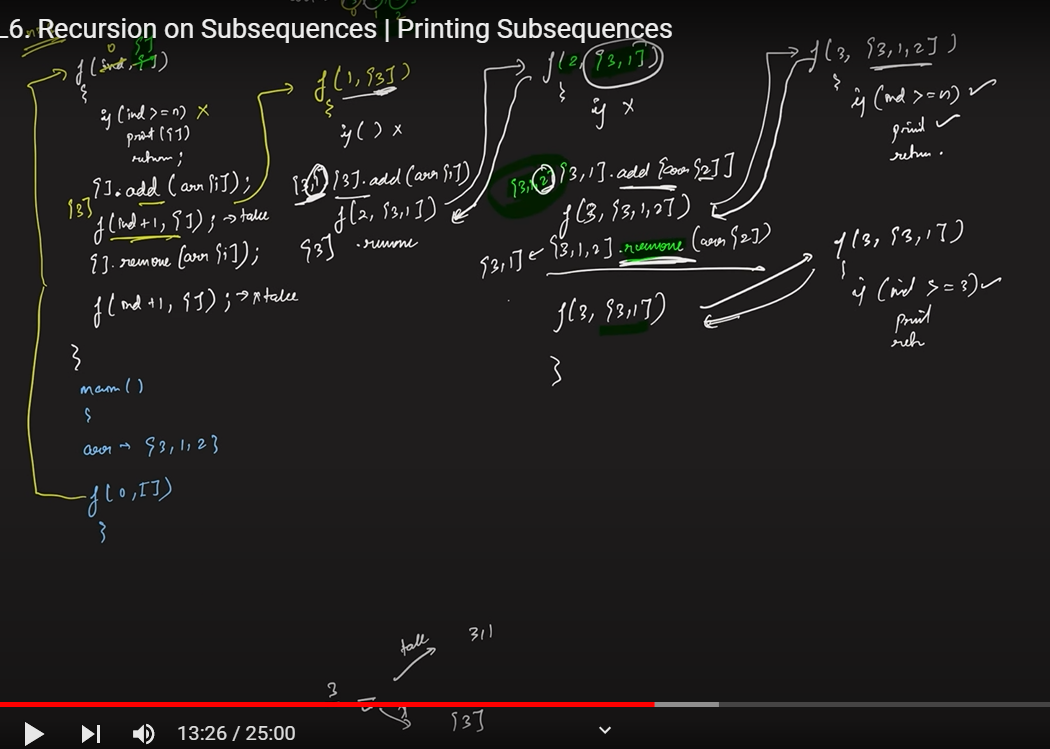 L6. Recursion on Subsequences | Printing Subsequences
0 []
f(ind, [])
{
if (ind >= n) x
print([])
return;
[].add(arr[i]);
[3]
f(ind+1, []); → take
[].remove(arr[i]);
f(ind+1, []); → x take
}
main()
{
arr → {3,1,2}
f(0, [])
}
f(1, [3])
{
if() x
[3,1] [3].add(arr[1])
f(2, [3,1])
[3] .remove
f(2, [3,1])
{
if x
[3,1,2] [3,1].add[arr[2]]
f(3, [3,1,2])
[3,1] ← [3,1,2].remove(arr[2])
f(3, [3,1])
}
f(3, [3,1,2])
{
if (ind >= n) ✓
print ✓
return.
f(3, [3,1])
{
if (ind >= 3) ✓
print
retn
take 3,1
3
x [3]
13:26 / 25:00